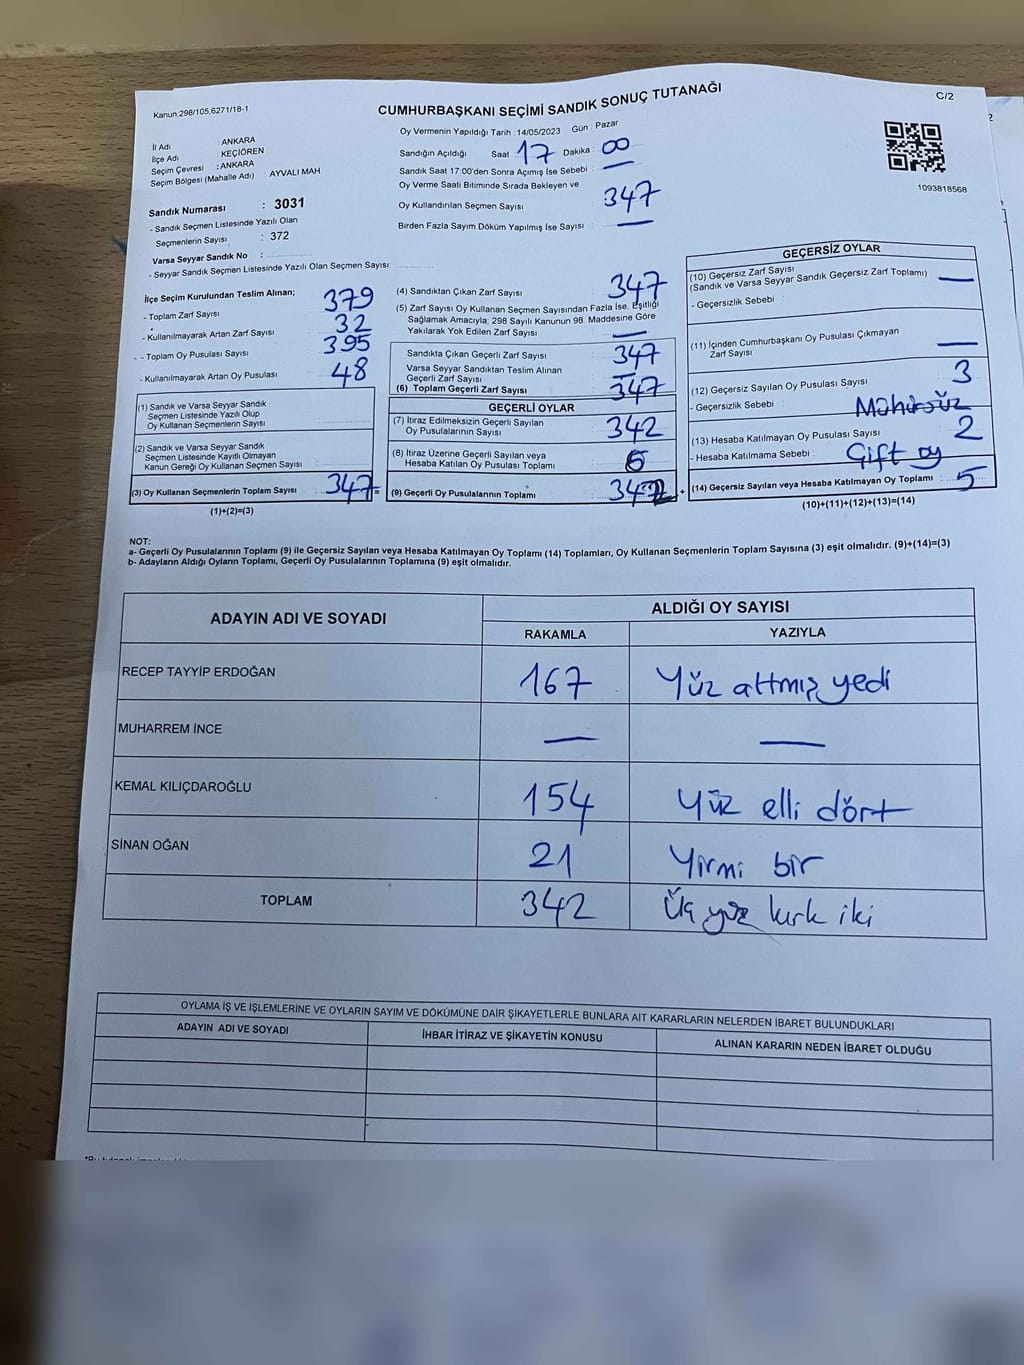 Kanun:298/105,6271/18-1
CUMHURBAŞKANI SEÇİMİ SANDIK SONUÇ TUTANAĞI
C/2
İl Adı : ANKARA
İlçe Adı : KEÇİÖREN
Seçim Çevresi : ANKARA
Seçim Bölgesi (Mahalle Adı) : AYVALI MAH
Sandık Numarası : 3031
- Sandık Seçmen Listesinde Yazılı Olan
Seçmenlerin Sayısı : 372
Varsa Seyyar Sandık No :
- Seyyar Sandık Seçmen Listesinde Yazılı Olan Seçmen Sayısı:
Oy Vermenin Yapıldığı Tarih : 14/05/2023 Gün : Pazar
Sandığın Açıldığı Saat : 17 Dakika : 00
Sandık Saat 17.00'den Sonra Açımış İse Sebebi : —
Oy Verme Saati Bitiminde Sırada Bekleyen ve
Oy Kullandırılan Seçmen Sayısı 347
Birden Fazla Sayım Döküm Yapılmış İse Sayısı : —
1093818568
İlçe Seçim Kurulundan Teslim Alınan;
- Toplam Zarf Sayısı 379
- Kullanılmayarak Artan Zarf Sayısı 32
- Toplam Oy Pusulası Sayısı 395
- Kullanılmayarak Artan Oy Pusulası 48
(1) Sandık ve Varsa Seyyar Sandık
Seçmen Listesinde Yazılı Olup
Oy Kullanan Seçmenlerin Sayısı
(2) Sandık ve Varsa Seyyar Sandık
Seçmen Listesinde Kayıtlı Olmayan
Kanun Gereği Oy Kullanan Seçmen Sayısı
(3) Oy Kullanan Seçmenlerin Toplam Sayısı : 347 =
(1)+(2)=(3)
(4) Sandıktan Çıkan Zarf Sayısı : 347
(5) Zarf Sayısı Oy Kullanan Seçmen Sayısından Fazla İse, Eşitliği
Sağlamak Amacıyla; 298 Sayılı Kanunun 98. Maddesine Göre
Yakılarak Yok Edilen Zarf Sayısı —
Sandıkta Çıkan Geçerli Zarf Sayısı 347
Varsa Seyyar Sandıktan Teslim Alınan
Geçerli Zarf Sayısı —
(6) Toplam Geçerli Zarf Sayısı 347
GEÇERLİ OYLAR
(7) İtiraz Edilmeksizin Geçerli Sayılan
Oy Pusulalarının Sayısı 342
(8) İtiraz Üzerine Geçerli Sayılan veya
Hesaba Katılan Oy Pusulası Toplamı
(9) Geçerli Oy Pusulalarının Toplamı : 342 +
GEÇERSİZ OYLAR
(10) Geçersiz Zarf Sayısı
(Sandık ve Varsa Seyyar Sandık Geçersiz Zarf Toplamı) —
- Geçersizlik Sebebi :
(11) İçinden Cumhurbaşkanı Oy Pusulası Çıkmayan
Zarf Sayısı —
(12) Geçersiz Sayılan Oy Pusulası Sayısı 3
- Geçersizlik Sebebi : Mühürsüz
(13) Hesaba Katılmayan Oy Pusulası Sayısı 2
- Hesaba Katılmama Sebebi : Çift oy
(14) Geçersiz Sayılan veya Hesaba Katılmayan Oy Toplamı : 5
(10)+(11)+(12)+(13)=(14)
NOT:
a- Geçerli Oy Pusulalarının Toplamı (9) ile Geçersiz Sayılan veya Hesaba Katılmayan Oy Toplamı (14) Toplamları, Oy Kullanan Seçmenlerin Toplam Sayısına (3) eşit olmalıdır. (9)+(14)=(3)
b- Adayların Aldığı Oyların Toplamı, Geçerli Oy Pusulalarının Toplamına (9) eşit olmalıdır.
ADAYIN ADI VE SOYADI ALDIĞI OY SAYISI
RAKAMLA YAZIYLA
RECEP TAYYİP ERDOĞAN 167 Yüz altmış yedi
MUHARREM İNCE — —
KEMAL KILIÇDAROĞLU 154 Yüz elli dört
SİNAN OĞAN 21 Yirmi bir
TOPLAM 342 Üç yüz kırk iki
OYLAMA İŞ VE İŞLEMLERİNE VE OYLARIN SAYIM VE DÖKÜMÜNE DAİR ŞİKAYETLERLE BUNLARA AİT KARARLARIN NELERDEN İBARET BULUNDUKLARI
ADAYIN ADI VE SOYADI İHBAR İTİRAZ VE ŞİKAYETİN KONUSU ALINAN KARARIN NEDEN İBARET OLDUĞU